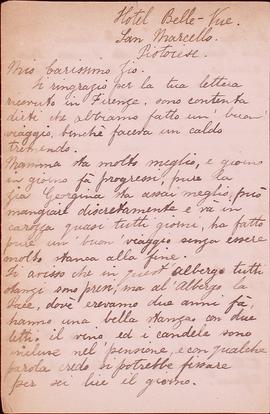 Hotel Belle-Vue.
San Marcello.
Pistoiese.
Mio Carissimo Zio.
Ti ringrazio per la tua lettera
ricevuto in Firenze, sono contenta
dirti che abbiamo fatto un' buon'
viaggio, benchè faceva un caldo
tremendo.
Mamma sta molto meglio, e giorno
in giorno fà progressi, pure la
Zia Georgina sta assai meglio, può
mangiare discretamente e và in
carozza quasi tutti giorni, ha fatto
pure un' buon' viaggio senza essere
molto stanca alla fine.
Ti avviso che in quest' albergo tutti
stanzi sono presi, ma al' Albergo la
Pace, dove eravamo due anni fà
hanno una bella stanza con due
letti, il vino, ed i candele sono
incluse nel pensione, e con qualche
parola credo si potrebbe fissare
per sei lire il giorno.